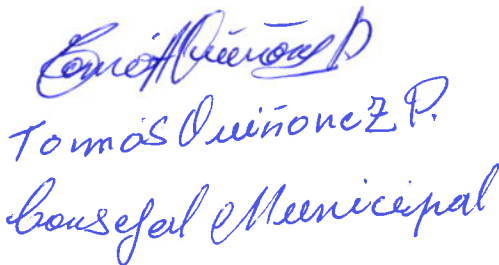 Tomás Quiñonez P.
Consejal Municipal